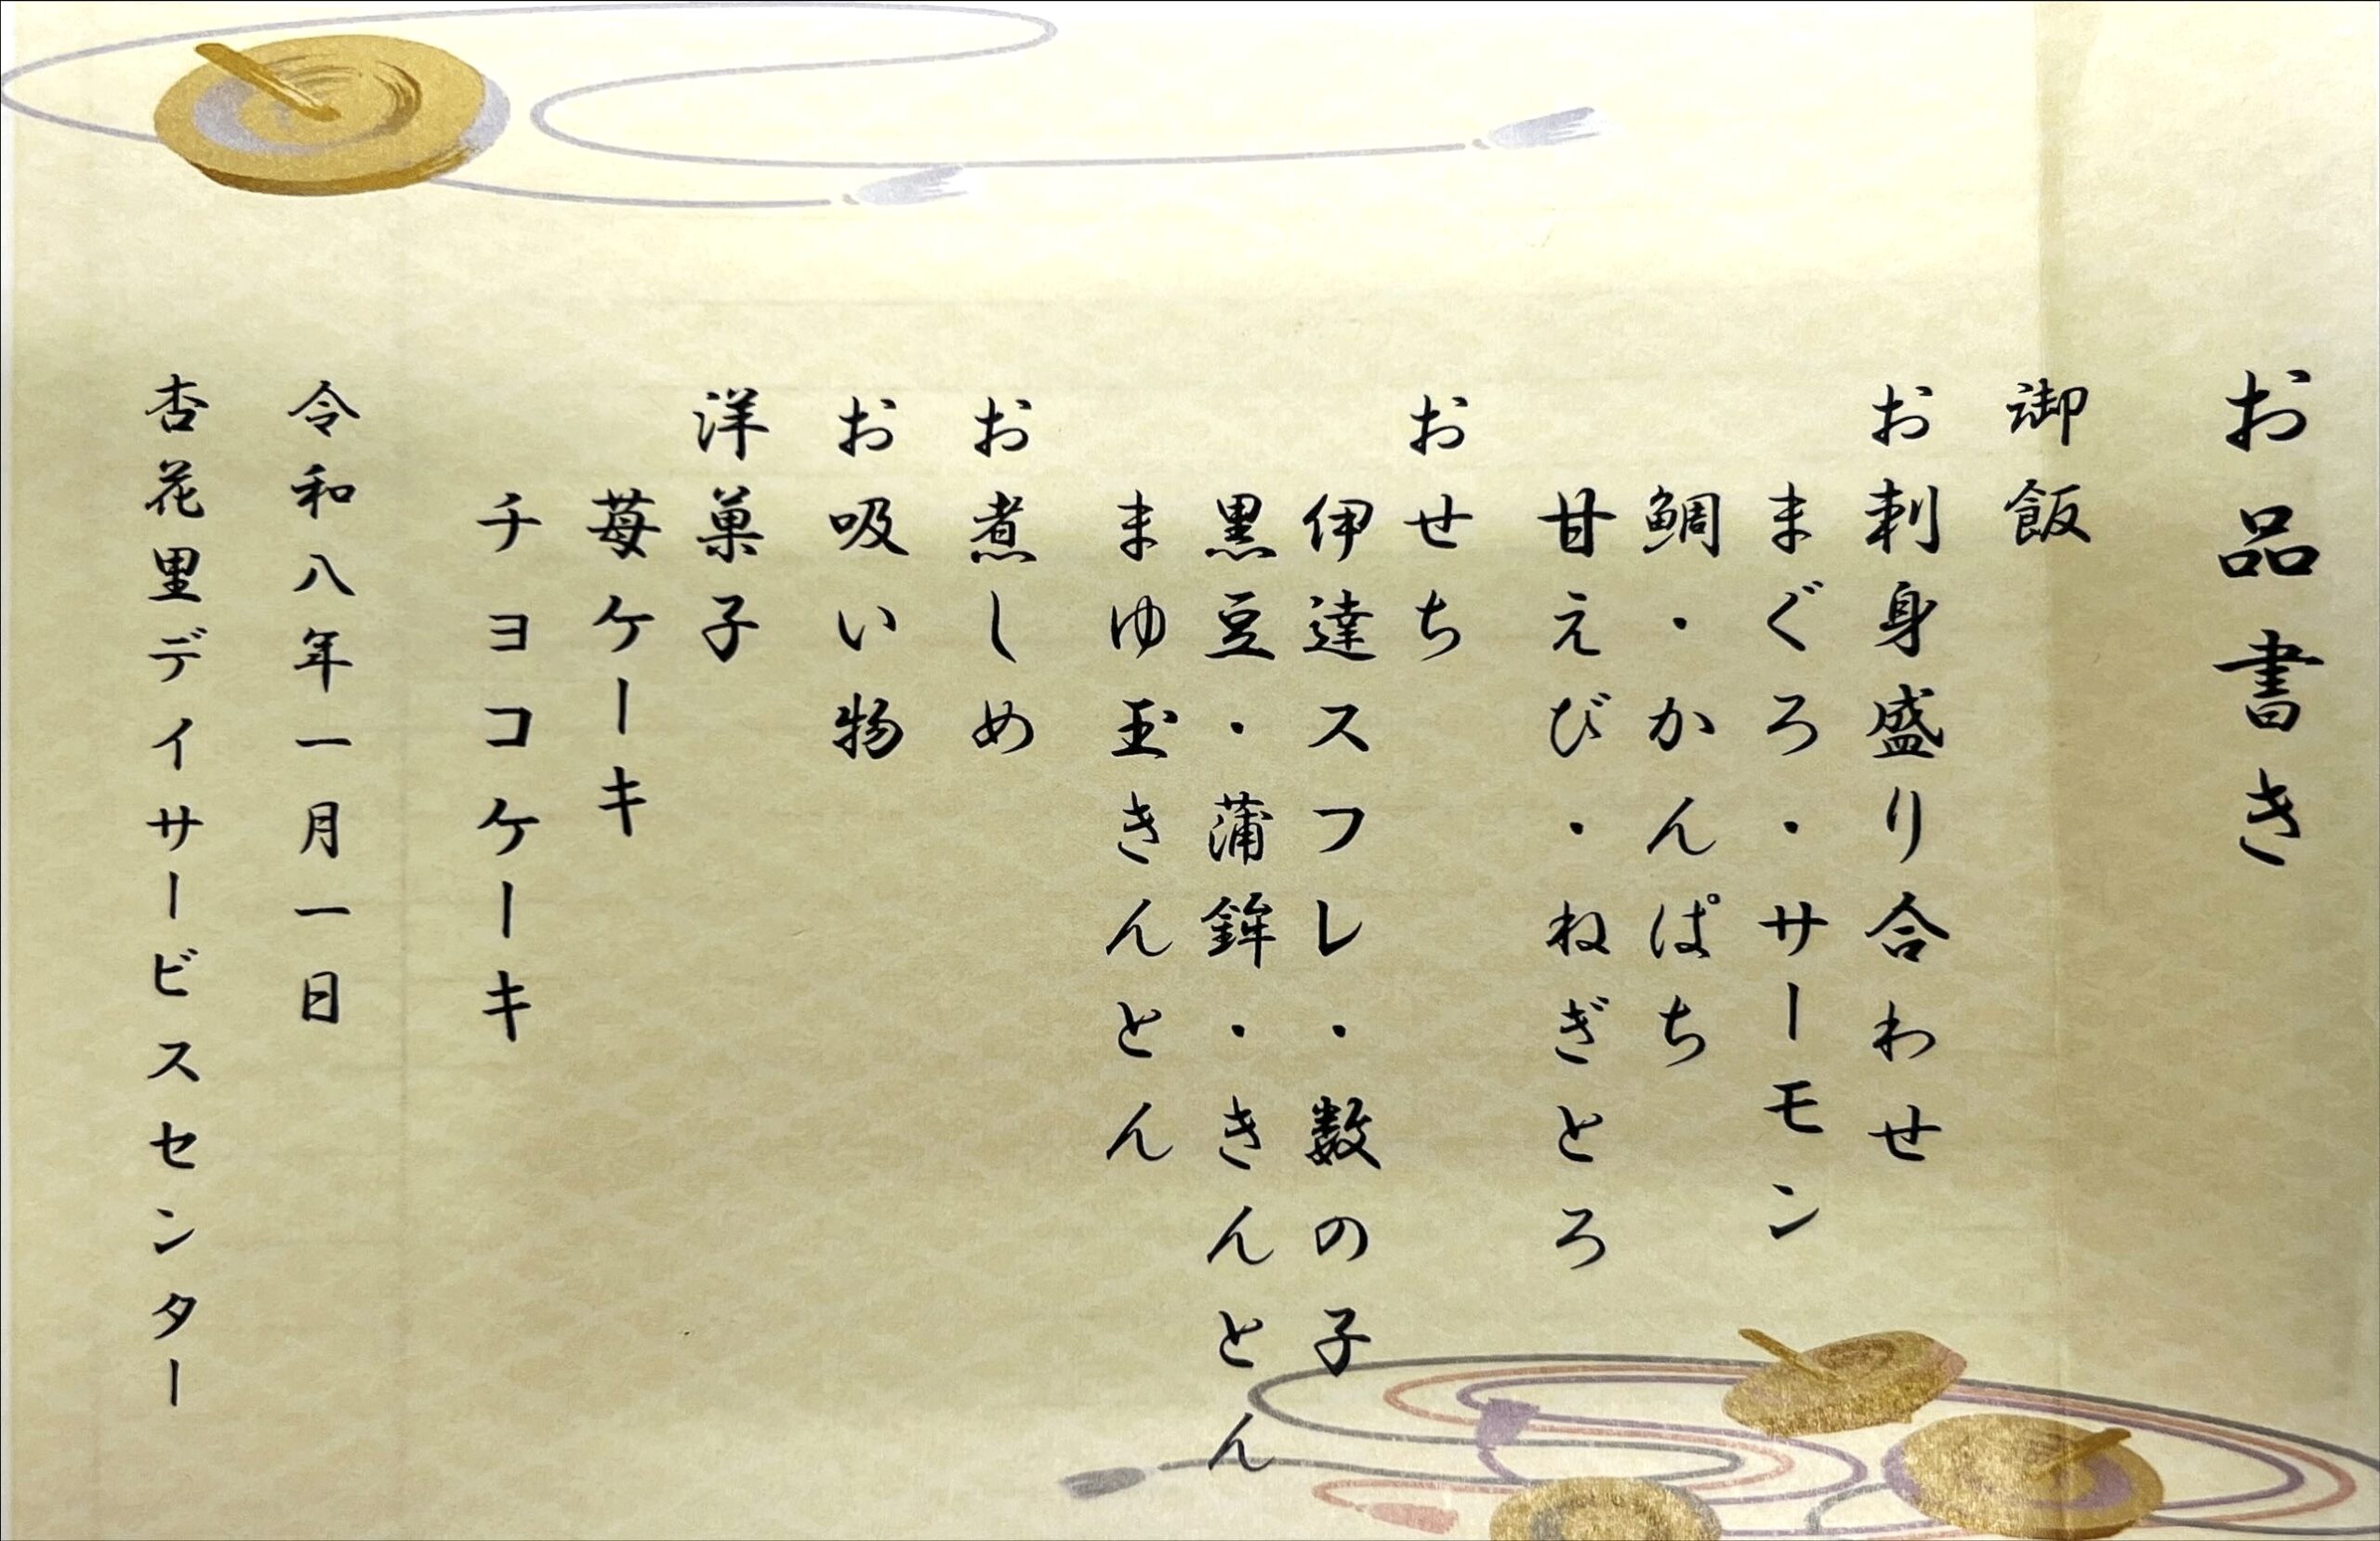 お品書き
御飯
お刺身盛り合わせ
まぐろ・サーモン
鯛・かんぱち
甘えび・ねぎとろ
おせち
伊達スフレ・数の子
黒豆・蒲鉾・きんとん
まゆ玉きんとん
お煮しめ
お吸い物
洋菓子
苺ケーキ
チョコケーキ
令和八年一月一日
杏花里デイサービスセンター